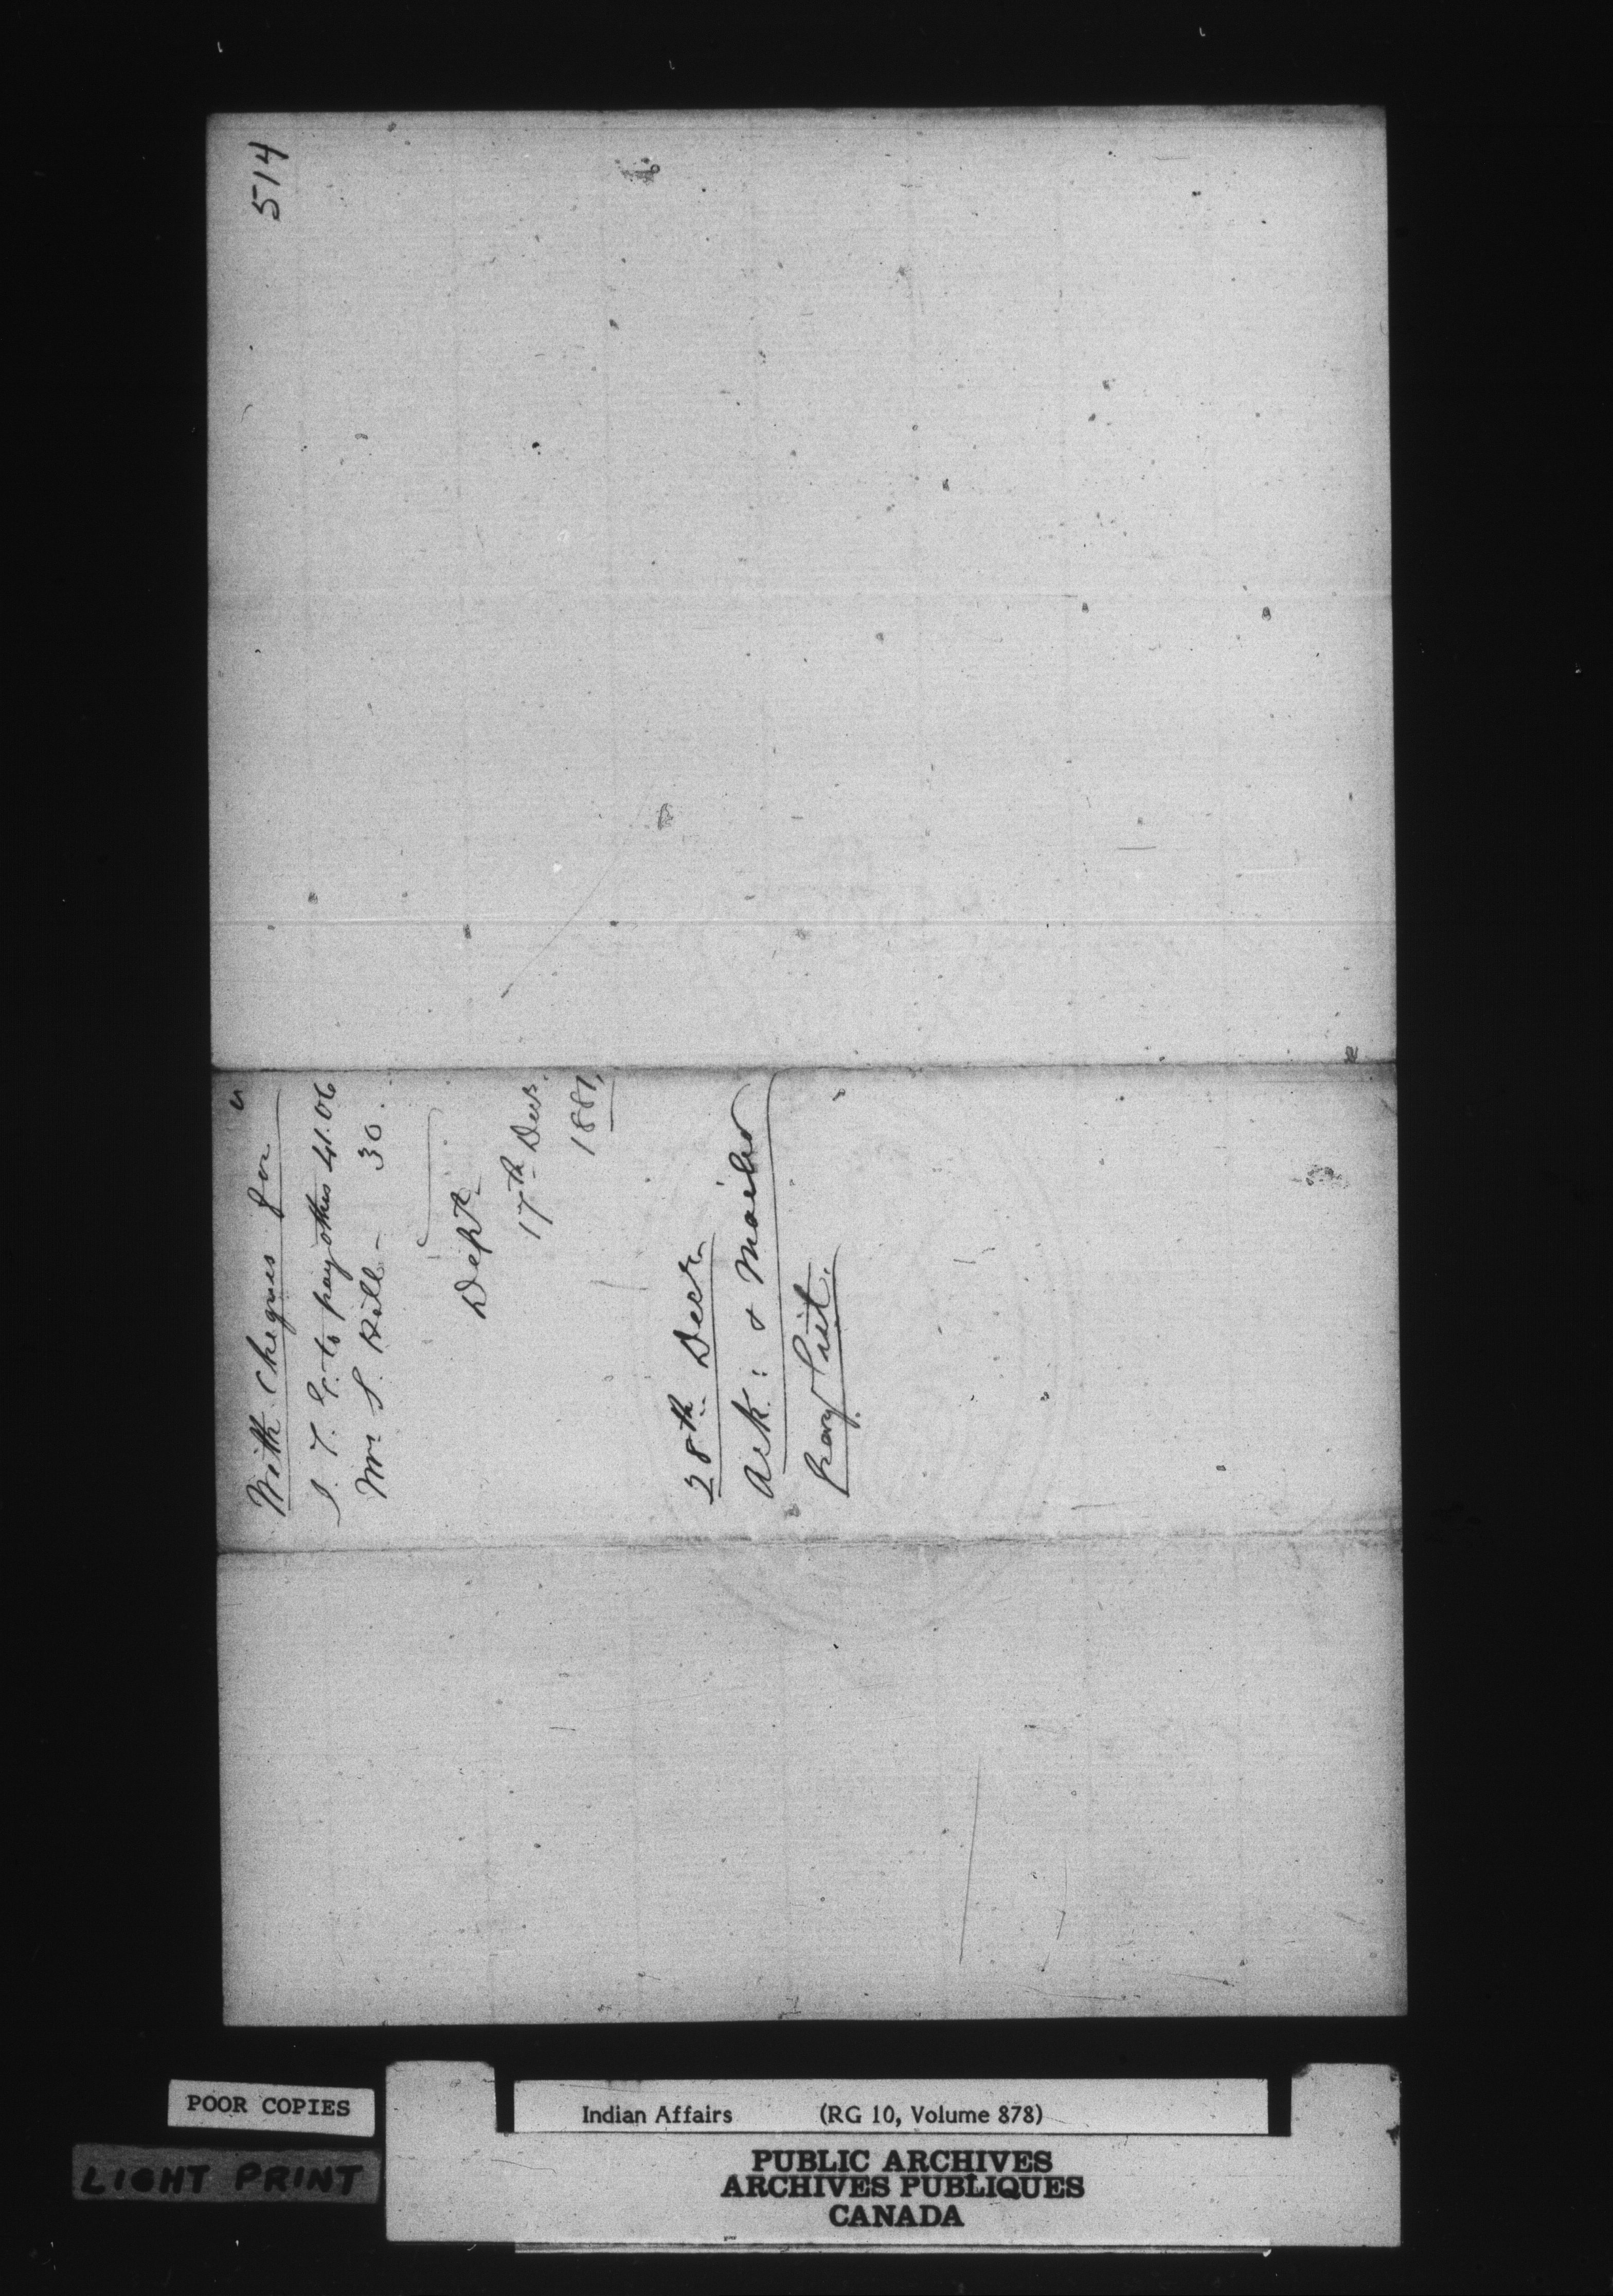 514
With Cheques for
J. T. G. to pay others 41.06
Mrs S. Hill - 30.
Dept
17th Decr.
1881,
28th Decr
Ack: &
Pay List.
POOR COPIES
LIGHT PRINT
Indian Affairs (RG 10, Volume 878)
PUBLIC ARCHIVES
ARCHIVES PUBLIQUES
CANADA